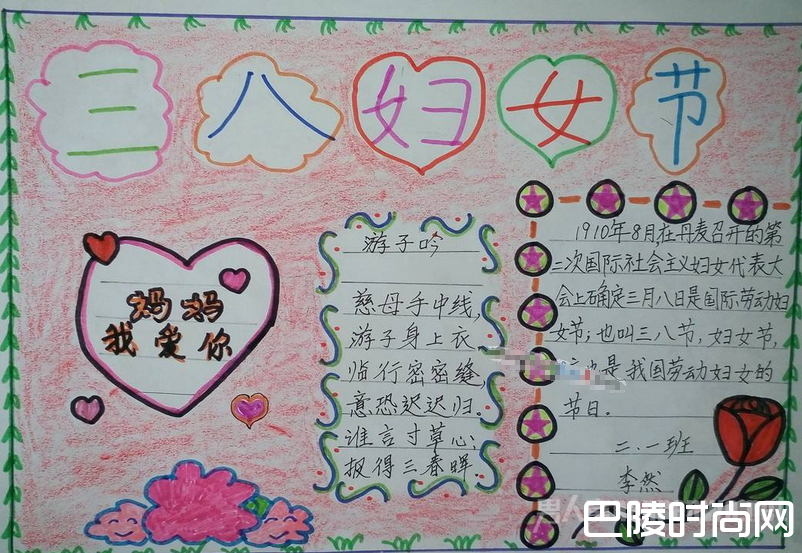 三八妇女节
妈妈
我爱你
游子吟
慈母手中线，
游子身上衣
临行密密缝，
意恐迟迟归。
谁言寸草心；
报得三春晖.
1910年8月，在丹麦召开的第
二次国际社会主义妇女代表大
会上确定三月八日是国际劳动妇
女节；也叫三八节，妇女节，
也是我国劳动妇女的
节日。
二.一班
李然
巴陵时尚网